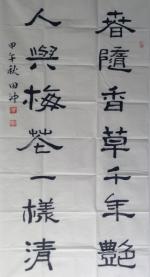 春隨香草千年艷
人與梅花一樣清
甲午秋田沖